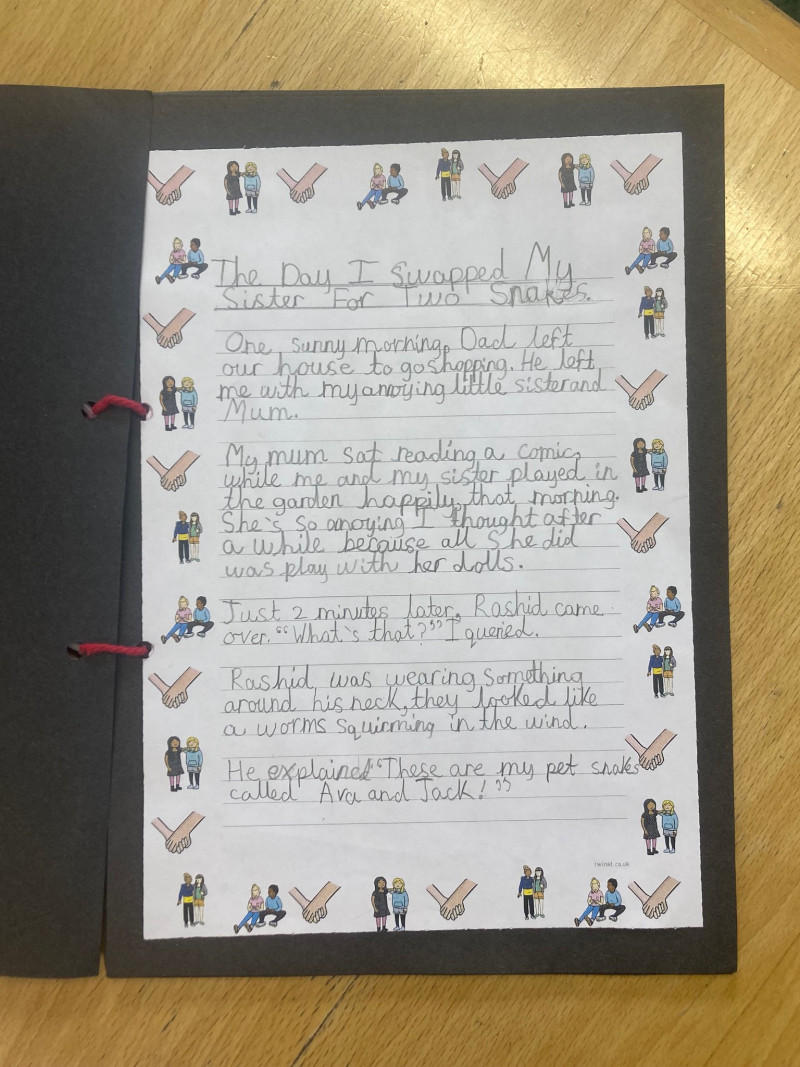 The Day I Swapped My
Sister For Two Snakes.
One sunny morning, Dad left
our house to go shopping. He left
me with my annoying little sister and
Mum.
My mum sat reading a comic,
while me and my sister played in
the garden happily, that morning.
She's so annoying I thought after
a while because all she did
was play with her dolls.
Just 2 minutes later, Rashid came
over. “What's that?” I queried.
Rashid was wearing something
around his neck, they looked like
a worms squirming in the wind.
He explained “These are my pet snakes
called Ava and Jack!”
twinkl.co.uk